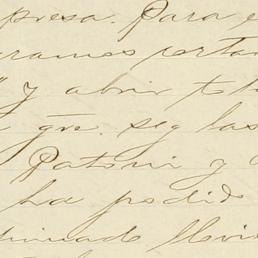 presa. Para e
gramos portan
y abrir to
que. seg las
Patoni y
ha podido
firmado llovi